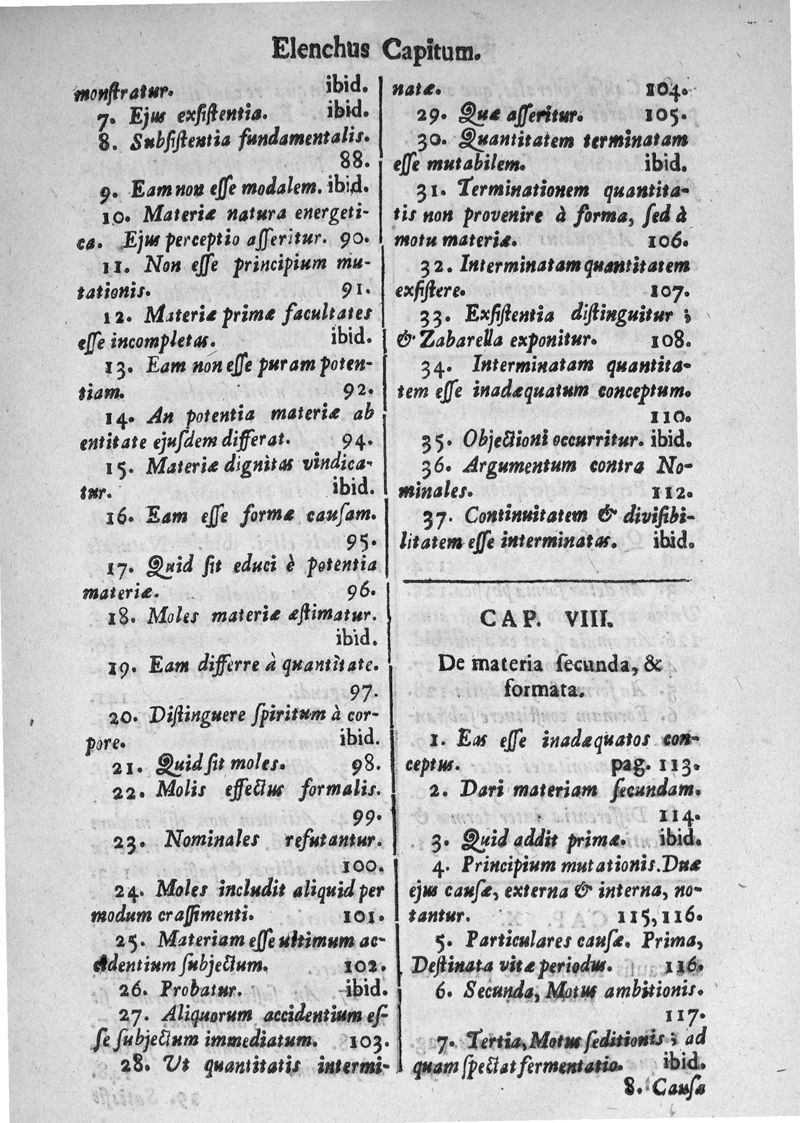 Elenchus Capitum.
monſtratur. ibid.
7. Ejus exſiſtentia. ibid.
8. Subſiſtentia fundamentalis.
88.
9. Eam non eſſe modalem. ibid.
10. Materiæ natura energeti-
ca. Ejus perceptio aſſeritur. 90.
11. Non eſſe principium mu-
tationis. 91.
12. Materiæ primæ facultates
eſſe incompletas. ibid.
13. Eam non eſſe puram poten-
tiam. 92.
14. An potentia materiæ ab
entitate ejuſdem differat. 94.
15. Materiæ dignitas vindica-
tur. ibid.
16. Eam eſſe formæ cauſam.
95.
17. Quid ſit educi è potentia
materiæ. 96.
18. Moles materiæ æſtimatur.
ibid.
19. Eam differre à quantitate.
97.
20. Diſtinguere ſpiritum à cor-
pore. ibid.
21. Quid ſit moles. 98.
22. Molis effectus formalis.
99.
23. Nominales refutantur.
100.
24. Moles includit aliquid per
modum craſſimenti. 101.
25. Materiam eſſe ultimum ac-
cidentium ſubjectum. 102.
26. Probatur. ibid.
27. Aliquorum accidentium eſ-
ſe ſubjectum immediatum. 103.
28. Ut quantitatis intermi-
natæ. 104.
29. Quæ aſſeritur. 105.
30. Quantitatem terminatam
eſſe mutabilem. ibid.
31. Terminationem quantita-
tis non provenire à forma, ſed à
motu materiæ. 106.
32. Interminatam quantitatem
exſiſtere. 107.
33. Exſiſtentia diſtinguitur;
& Zabarella exponitur. 108.
34. Interminatam quantita-
tem eſſe inadæquatum conceptum.
110.
35. Objectioni occurritur. ibid.
36. Argumentum contra No-
minales. 112.
37. Continuitatem & diviſibi-
litatem eſſe interminatas. ibid.
CAP. VIII.
De materia ſecunda, &
formata.
1. Eas eſſe inadæquatos con-
ceptus. pag. 113.
2. Dari materiam ſecundam.
114.
3. Quid addit primæ. ibid.
4. Principium mutationis. Duæ
ejus cauſæ, externa & interna, no-
tantur. 115, 116.
5. Particulares cauſæ. Prima,
Deſtinata vitæ periodus. 116.
6. Secunda, Motus ambitionis.
117.
7. Tertia, Motus ſeditionis; ad
quam ſpectat fermentatio. ibid.
8. Cauſa